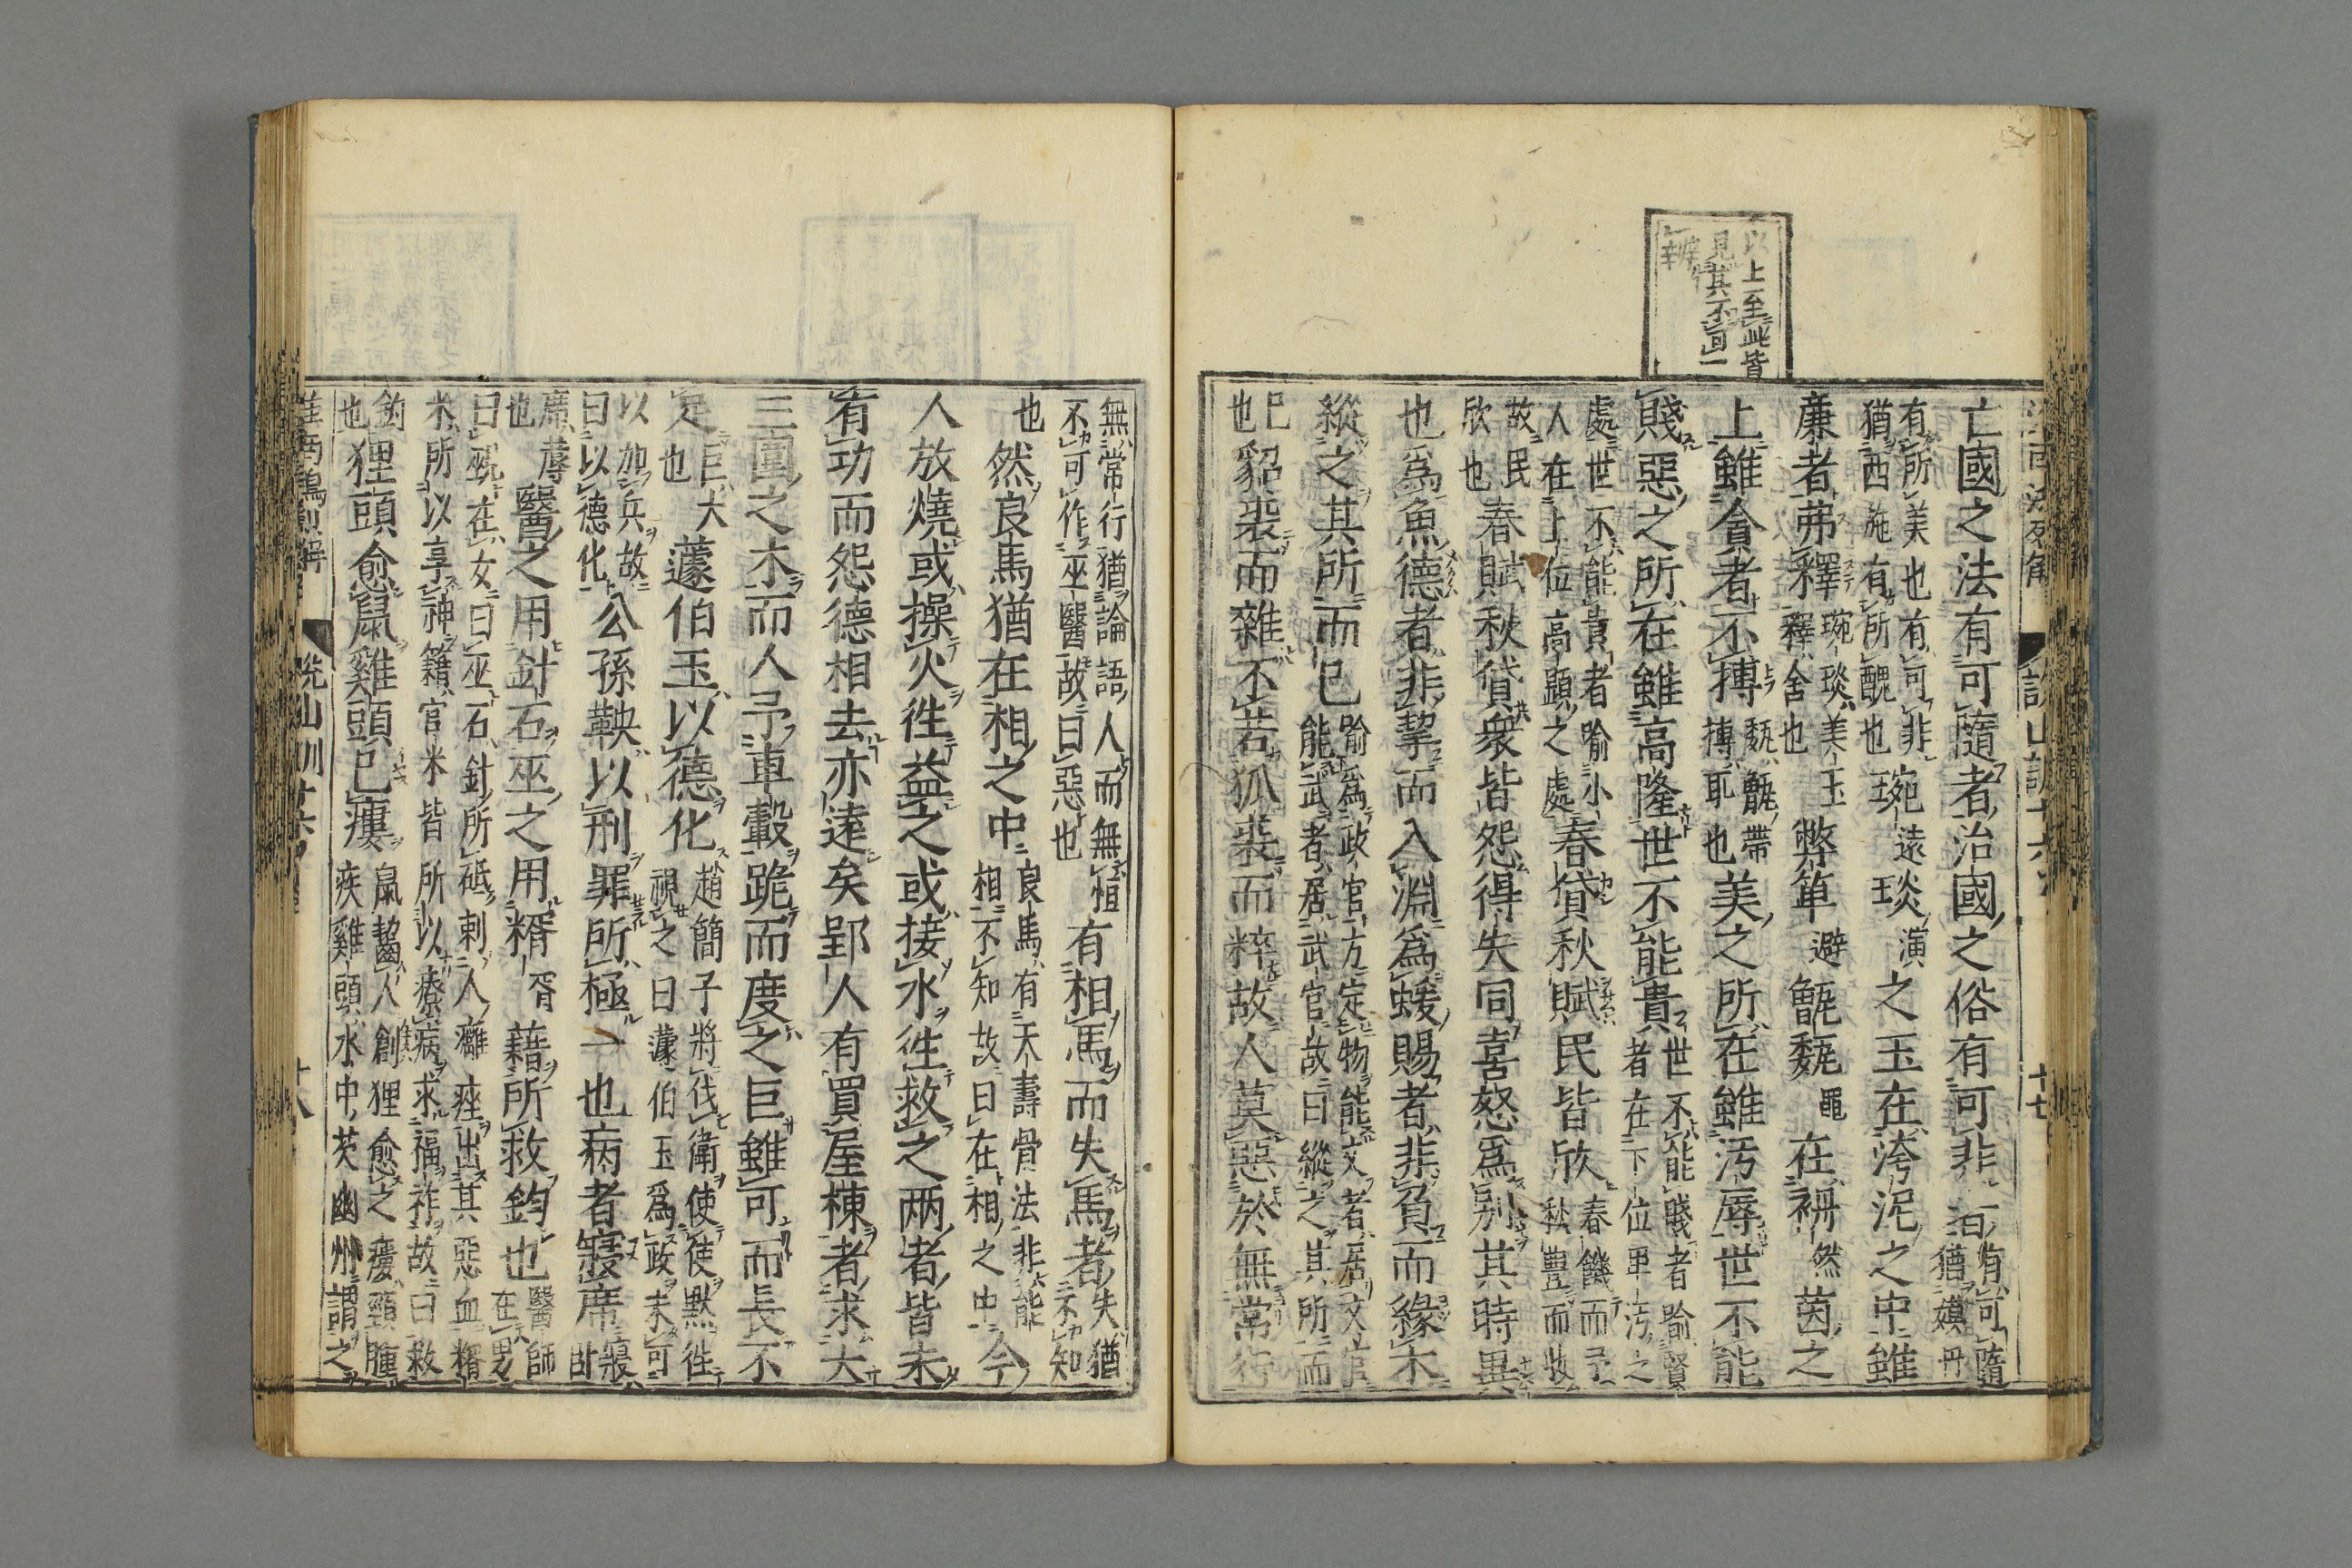 以上至此皆
見其不可一
亡國之法有可隨者治國之俗有可非者有可隨猶嫫母
有所美也有可非猶西施有所醜也琬琬遠琰琰演之玉在洿泥之中雖
廉者弗釋琬琰美玉釋舍也弊箄避甑甒黽在袡然茵之
上雖貪者不搏甒甑帶搏取也美之所在雖汚辱世不能
賤惡之所在雖高隆世不能貴世不能賤者喻賢者在下位卑汚之
處世不能貴者喻小人在上位高顯之處春貸秋賦民皆欣春饑而予秋豐而收
故民欣也春賦秋貸衆皆怨得失同喜怒爲別其時異
也爲魚德者非挈而入淵爲蝯賜者非負而緣木
縱之其所而已喻爲政官方定物能文者居文官能武者居武官故曰縱之其所而
已也貂裘而雜不若狐裘而粹故人莫惡於無常行
無常行猶論語人而無恒不可作巫醫故曰惡也有相馬而失馬者失猶不知
也然良馬猶在相之中良馬有夭壽骨法非能相不知故曰在相之中今
人放燒或操火往益之或接水往救之兩者皆未
有功而怨德相去亦遠矣郢人有買屋棟者求大
三圍之木而人予車轂跪而度之巨雖可而長不
足巨大也蘧伯玉以德化趙簡子將伐衛使使默往視之曰蘧伯玉爲政未可
以加兵故曰以德化公孫鞅以刑罪所極一也病者寢席寢臥
席蓐也醫之用針石巫之用糈糈藉所救鈞也醫師在男
曰覡在女曰巫石針所砥刺人癰痤出其惡血糈
米所以享神籍官米皆所以療病求福祚故曰救
鈞也狸頭愈鼠雞頭已瘻鼠齧人創狸愈之瘻頸腫疾雞頭水中芡幽州謂之
十七
十八